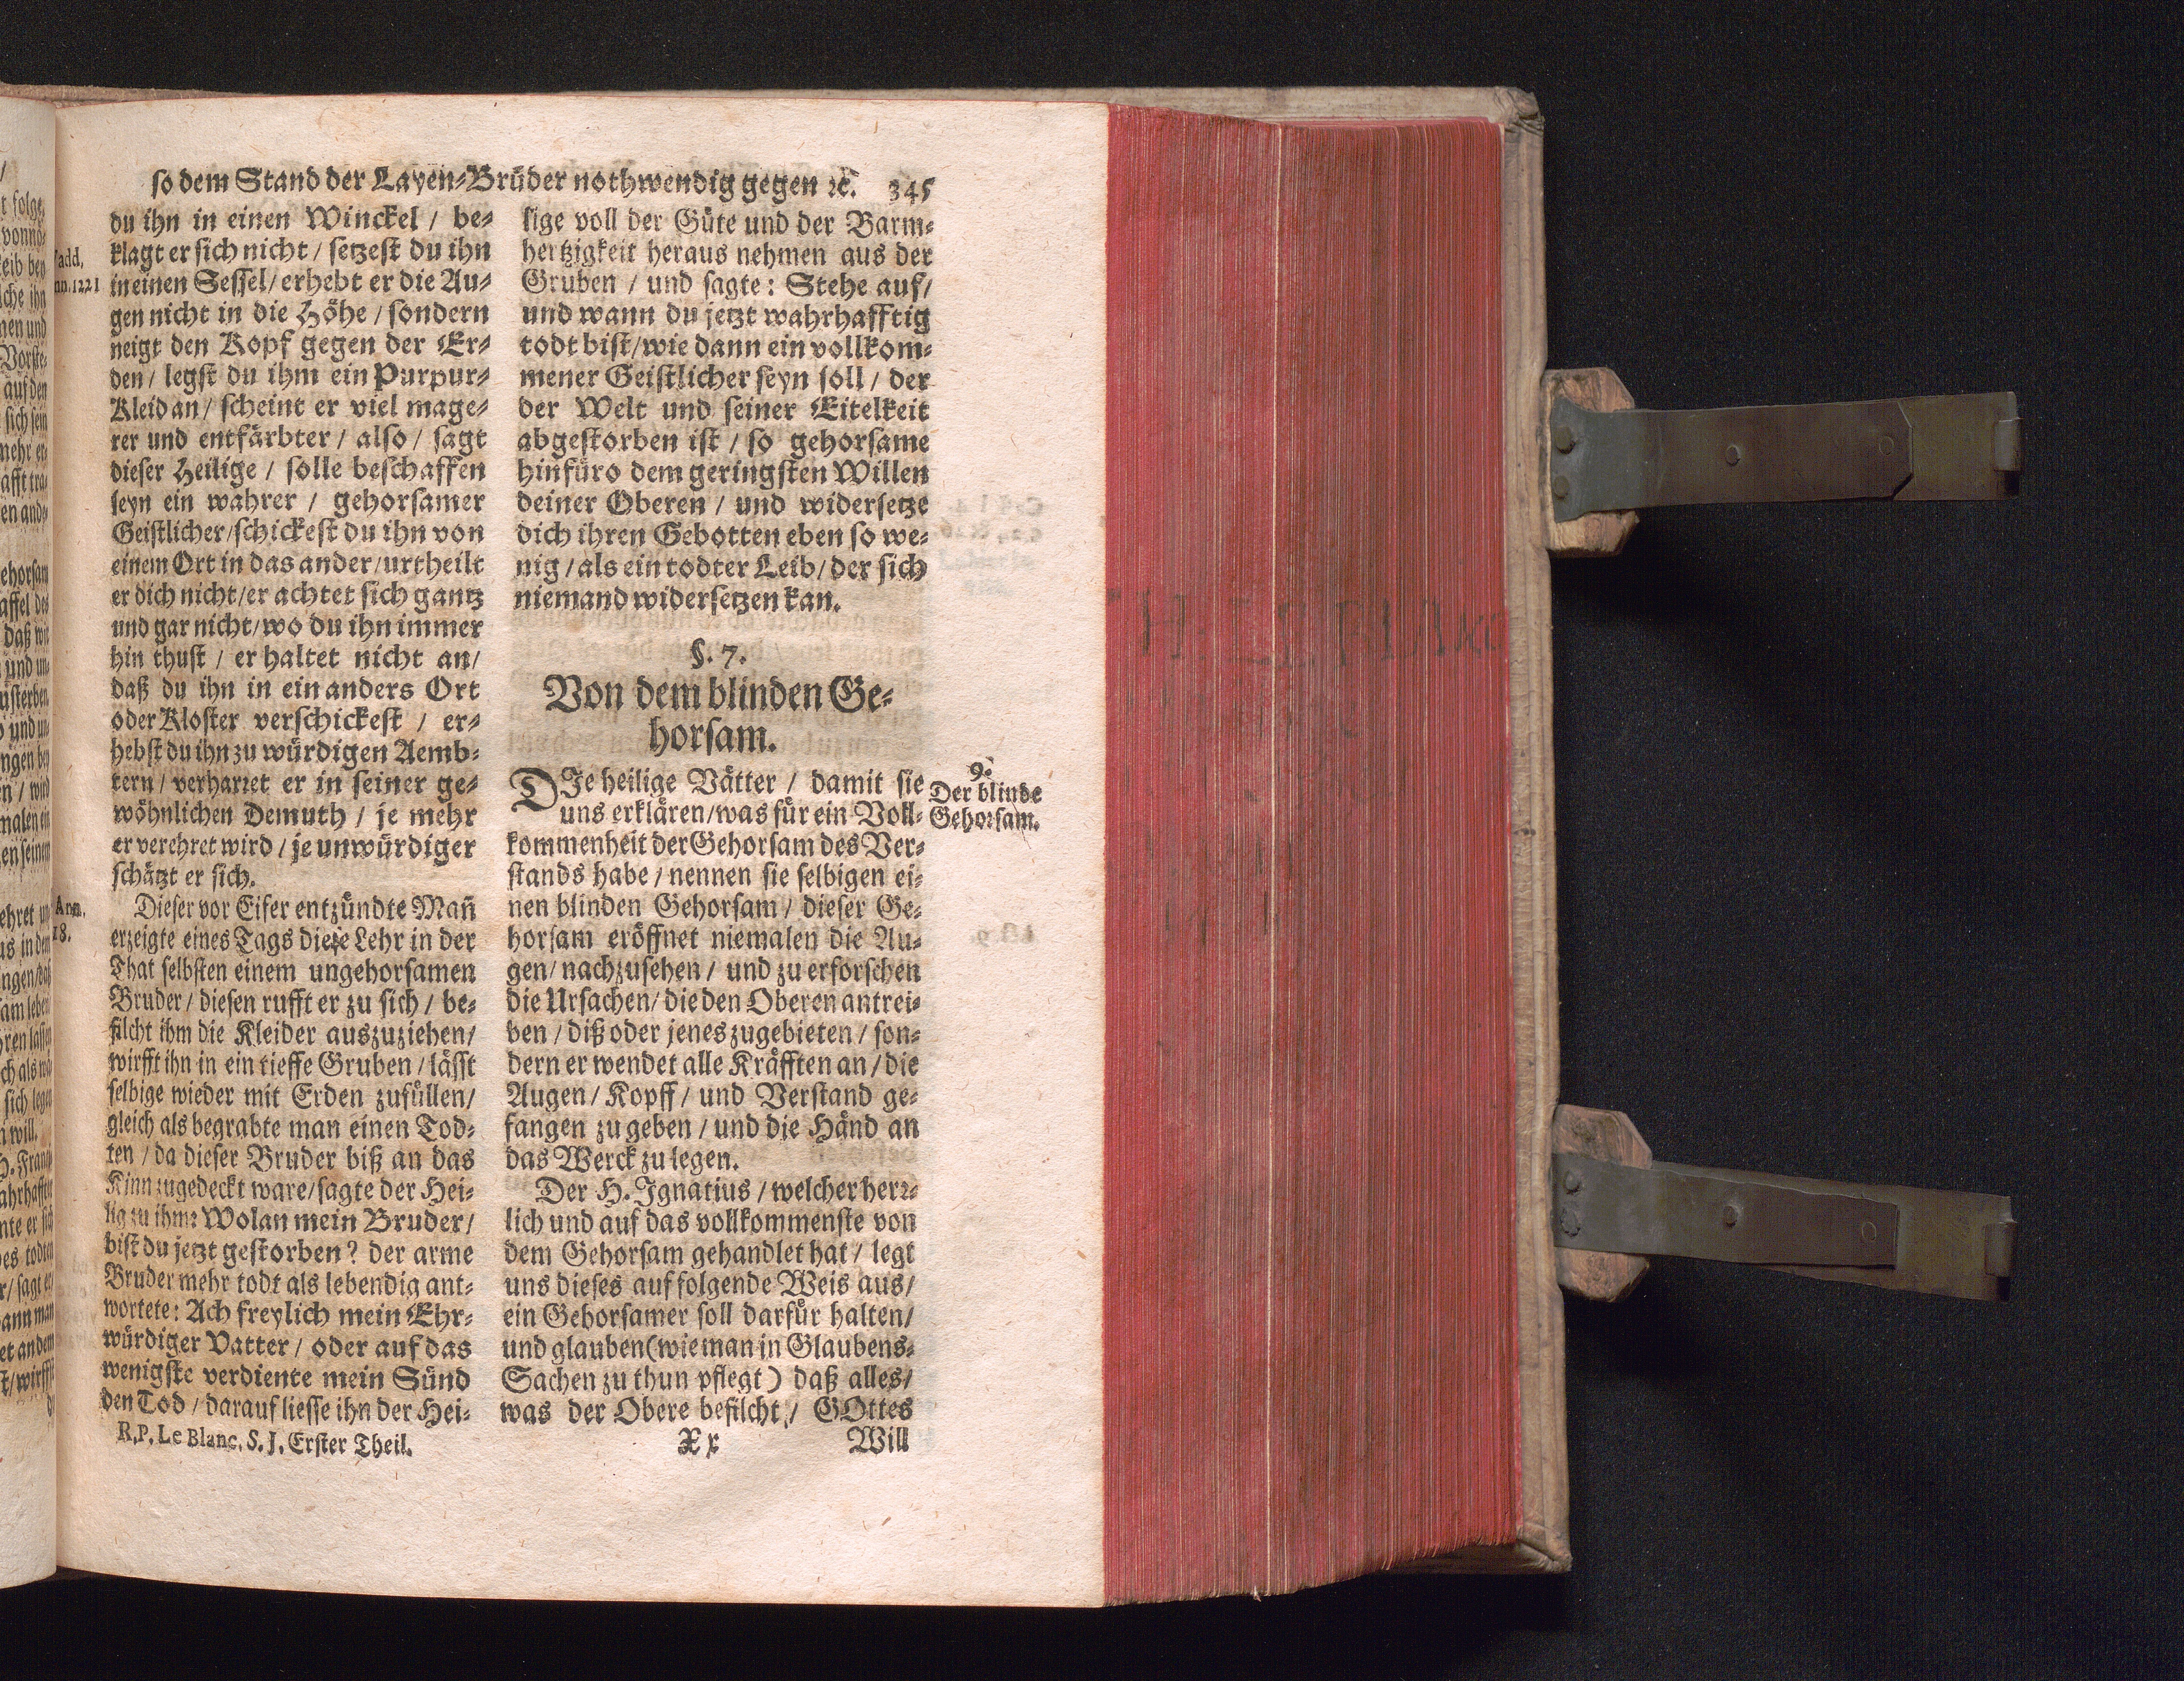 so dem Stand der Layen-Brüder nothwendig gegen ꝛc. 345
du ihn in einen Winckel / be-
klagt er sich nicht / setzest du ihn
in einen Sessel / erhebt er die Au-
gen nicht in die Höhe / sondern
neigt den Kopf gegen der Er-
den / legst du ihm ein Purpur-
Kleid an / scheint er viel mage-
rer und entfärbter / also / sagt
dieser Heilige / solle beschaffen
seyn ein wahrer / gehorsamer
Geistlicher / schickest du ihn von
einem Ort in das ander / urtheilt
er dich nicht / er achtet sich gantz
und gar nicht / wo du ihn immer
hin thust / er haltet nicht an /
daß du ihn in ein anders Ort
oder Kloster verschickest / er-
hebst du ihn zu würdigen Aemb-
tern / verharret er in seiner ge-
wöhnlichen Demuth / je mehr
er verehret wird / je unwürdiger
schätzt er sich.
Dieser vor Eifer entzündte Mañ
erzeigte eines Tags diese Lehr in der
That selbsten einem ungehorsamen
Bruder / diesen rufft er zu sich / be-
filcht ihm die Kleider auszuziehen /
wirfft ihn in ein tieffe Gruben / lässt
selbige wieder mit Erden zufüllen /
gleich als begrabte man einen Tod-
ten / da dieser Bruder biß an das
Kinn zugedeckt ware / sagte der Hei-
lig zu ihm: Wolan mein Bruder /
bist du jetzt gestorben? der arme
Bruder mehr todt als lebendig ant-
wortete: Ach freylich mein Ehr-
würdiger Vatter / oder auf das
wenigste verdiente mein Sünd
den Tod / darauf liesse ihn der Hei-
R.P. Le Blanc. S. J. Erster Theil.
lige voll der Güte und der Barm-
hertzigkeit heraus nehmen aus der
Gruben / und sagte: Stehe auf /
und wann du jetzt wahrhafftig
todt bist / wie dann ein vollkom-
mener Geistlicher seyn soll / der
der Welt und seiner Eitelkeit
abgestorben ist / so gehorsame
hinfüro dem geringsten Willen
deiner Oberen / und widersetze
dich ihren Gebotten eben so we-
nig / als ein todter Leib / der sich
niemand widersetzen kan.
§. 7.
Von dem blinden Ge-
horsam.
DIe heilige Vätter / damit sie
uns erklären / was für ein Voll-
kommenheit der Gehorsam des Ver-
stands habe / nennen sie selbigen ei-
nen blinden Gehorsam / dieser Ge-
horsam eröffnet niemalen die Au-
gen / nachzusehen / und zu erforschen
die Ursachen / die den Oberen antrei-
ben / diß oder jenes zugebieten / son-
dern er wendet alle Kräfften an / die
Augen / Kopff / und Verstand ge-
fangen zu geben / und die Händ an
das Werck zu legen.
Der H. Ignatius / welcher herr-
lich und auf das vollkommenste von
dem Gehorsam gehandlet hat / legt
uns dieses auf folgende Weis aus /
ein Gehorsamer soll darfür halten /
und glauben (wie man in Glaubens-
Sachen zu thun pflegt) daß alles /
was der Obere befilcht / GOttes
Xx Will
9.
Der blinde
Gehorsam.
Ann.
18.